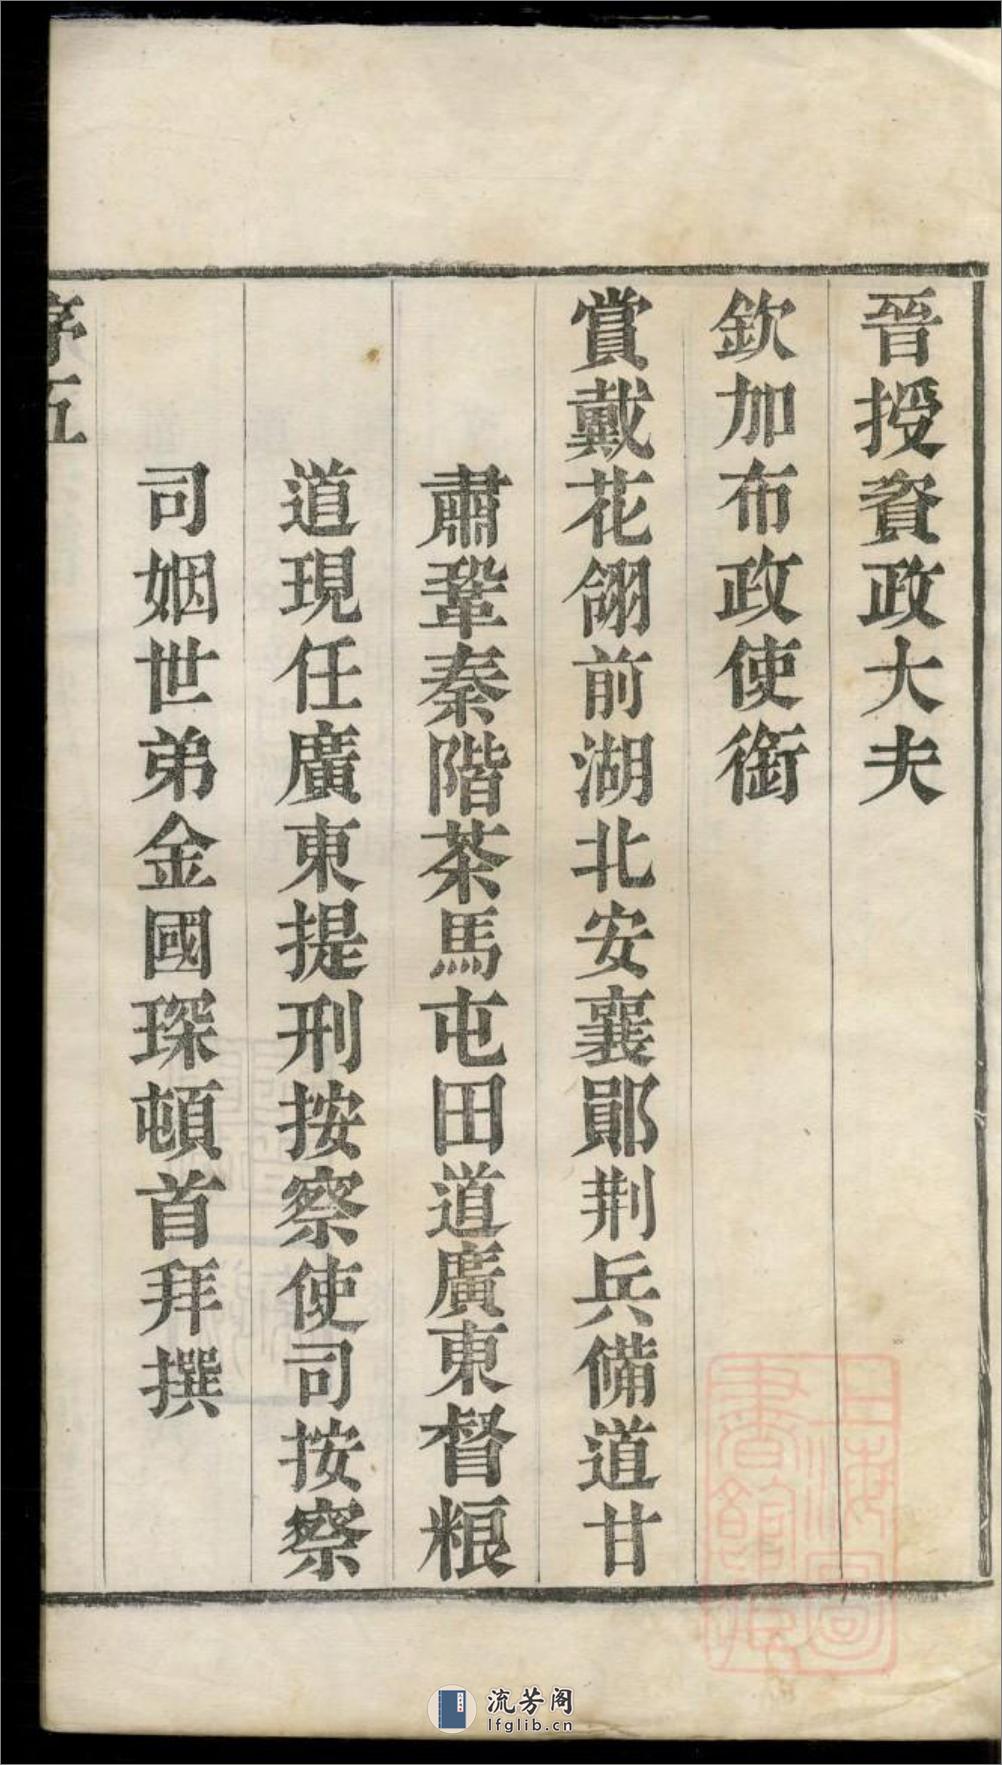 晉授資政大夫
欽加布政使銜
賞戴花翎前湖北安襄鄖荆兵備道甘
肅鞏秦階茶馬屯田道廣東督粮
道現任廣東提刑按察使司按察
司姻世弟金國琛頓首拜撰
序五
上海圖書館藏
流芳阁
lfglib.cn